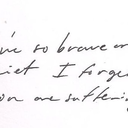 u're so brave an
iet I forge
ou are sufferin